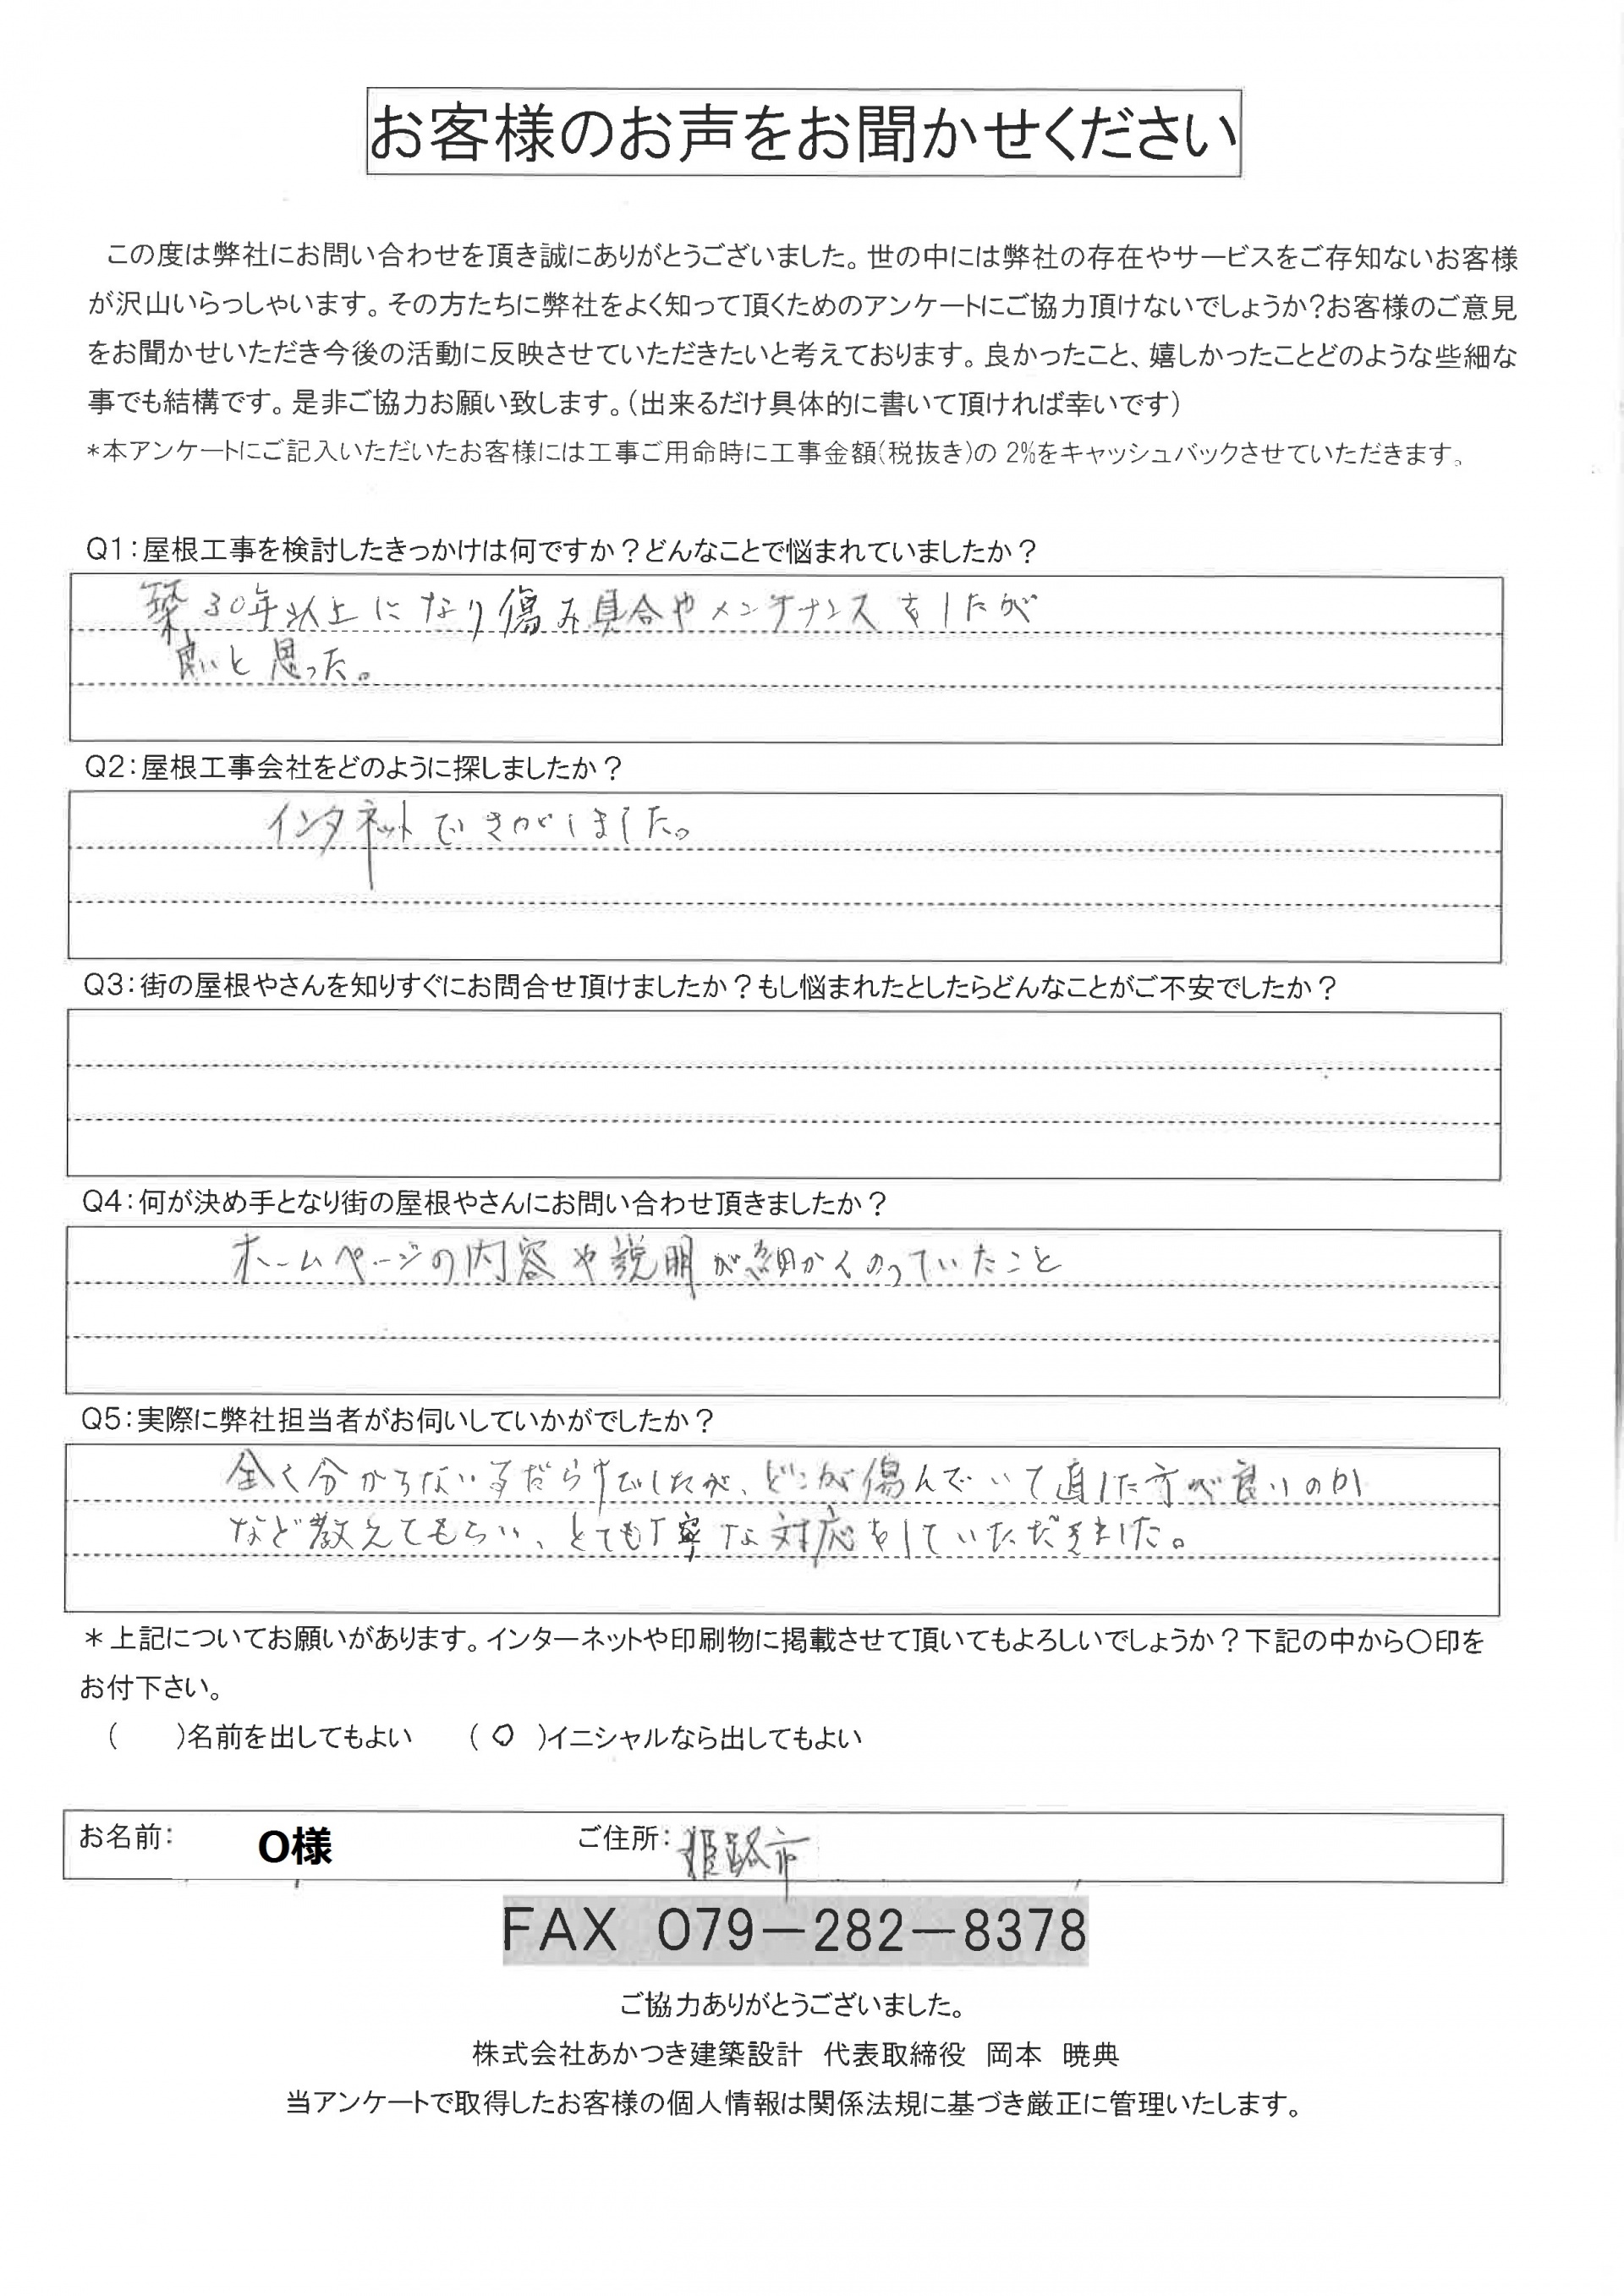 お客様のお声をお聞かせください
この度は弊社にお問い合わせを頂き誠にありがとうございました。世の中には弊社の存在やサービスをご存知ないお客様
が沢山いらっしゃいます。その方たちに弊社をよく知って頂くためのアンケートにご協力頂けないでしょうか?お客様のご意見
をお聞かせいただき今後の活動に反映させていただきたいと考えております。良かったこと、嬉しかったことどのような些細な
事でも結構です。是非ご協力お願い致します。(出来るだけ具体的に書いて頂ければ幸いです)
*本アンケートにご記入いただいたお客様には工事ご用命時に工事金額(税抜き)の 2%をキャッシュバックさせていただきます。
Q1:屋根工事を検討したきっかけは何ですか?どんなことで悩まれていましたか?
築30年以上になり傷み具合やメンテナンスをしたが
良いと思った。
Q2:屋根工事会社をどのように探しましたか?
インタネットでさがしました。
Q3:街の屋根やさんを知りすぐにお問合せ頂けましたか?もし悩まれたとしたらどんなことがご不安でしたか?
Q4:何が決め手となり街の屋根やさんにお問い合わせ頂きましたか?
ホームページの内容や説明が細かくのっていたこと
Q5:実際に弊社担当者がお伺いしていかがでしたか?
全く分からない事だらけでしたが、どこが傷んでいて直した方が良いのか
など教えてもらい、とても丁寧な対応をしていただきました。
*上記についてお願いがあります。インターネットや印刷物に掲載させて頂いてもよろしいでしょうか?下記の中から〇印を
お付下さい。
(　　)名前を出してもよい　(〇)イニシャルなら出してもよい
お名前: O様　ご住所: 姫路市
FAX 079-282-8378
ご協力ありがとうございました。
株式会社あかつき建築設計 代表取締役 岡本 暁典
当アンケートで取得したお客様の個人情報は関係法規に基づき厳正に管理いたします。